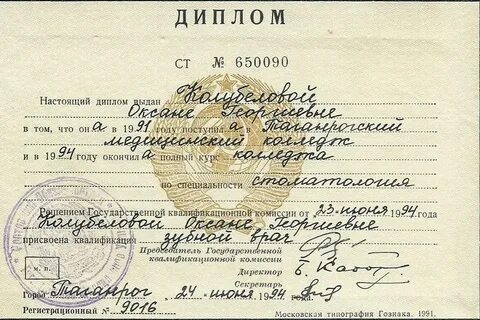 ДИПЛОМ
СТ № 650090
Настоящий диплом выдан Колубеловой
Оксане Георгиевне
в том, что он а в 1991 году поступил а в Таганрогский
медицинский колледж
и в 1994 году окончил а полный курс колледжа
по специальности стоматология
Решением Государственной квалификационной комиссии от 23 июня 1994 года
Колубеловой Оксане Георгиевне
присвоена квалификация зубной врач
Председатель Государственной
квалификационной комиссии
Директор
М. П.
Город Таганрог 24 июня 1994
Регистрационный № 9016
Московская типография Гознака. 1991.